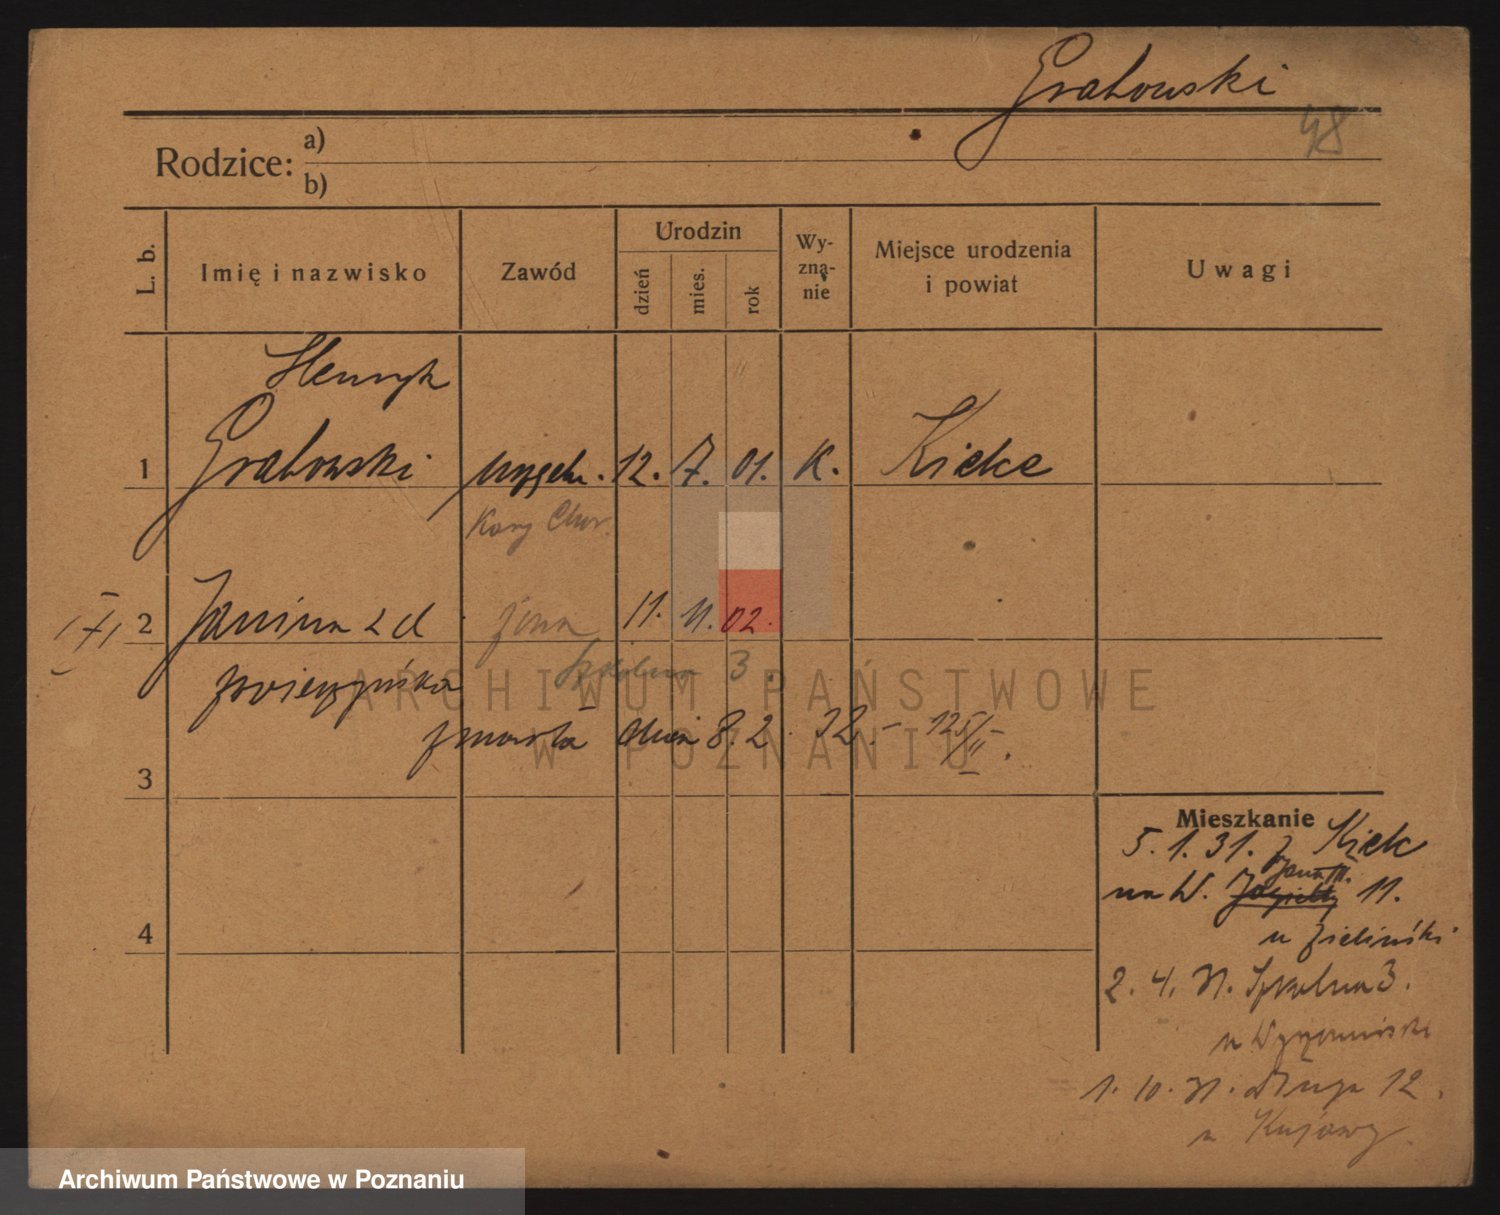 Grabowski
48
Rodzice: a)
b)
L. b.
Imię i nazwisko
Zawód
Urodzin
dzień
mies.
rok
Wyznanie
Miejsce urodzenia i powiat
Uwagi
Henryk
1 Grabowski 12. 7. 01. K. Kielce
Kasy Chor.
2 Janina z d. żona 11. 11. 02.
Szkolna 3
zmarła dnia 8. 2. 32. - 125/II.
3
4
Mieszkanie
5. 1. 31. z Kielc
na W. Jana III. Jagiełły 11.
u Zieliński
2. 4. 31. Szkolna 3.
1. 10. 31. Długa 12.
u Kujawy
ARCHIWUM PAŃSTWOWE
W POZNANIU
Archiwum Państwowe w Poznaniu